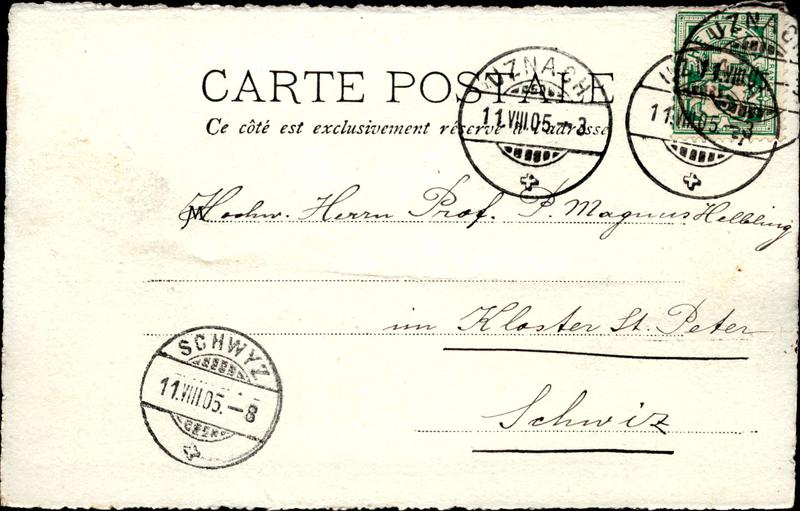 CARTE POSTALE
Ce côté est exclusivement réservé à l'adresse
UZNACH
11.VIII.05.-3
UZNACH
11.VIII.05.-3
M
Hochw. Herrn Prof. P. Magnus Helbling
im Kloster St. Peter
Schwiz
SCHWYZ
11.VIII.05.-8